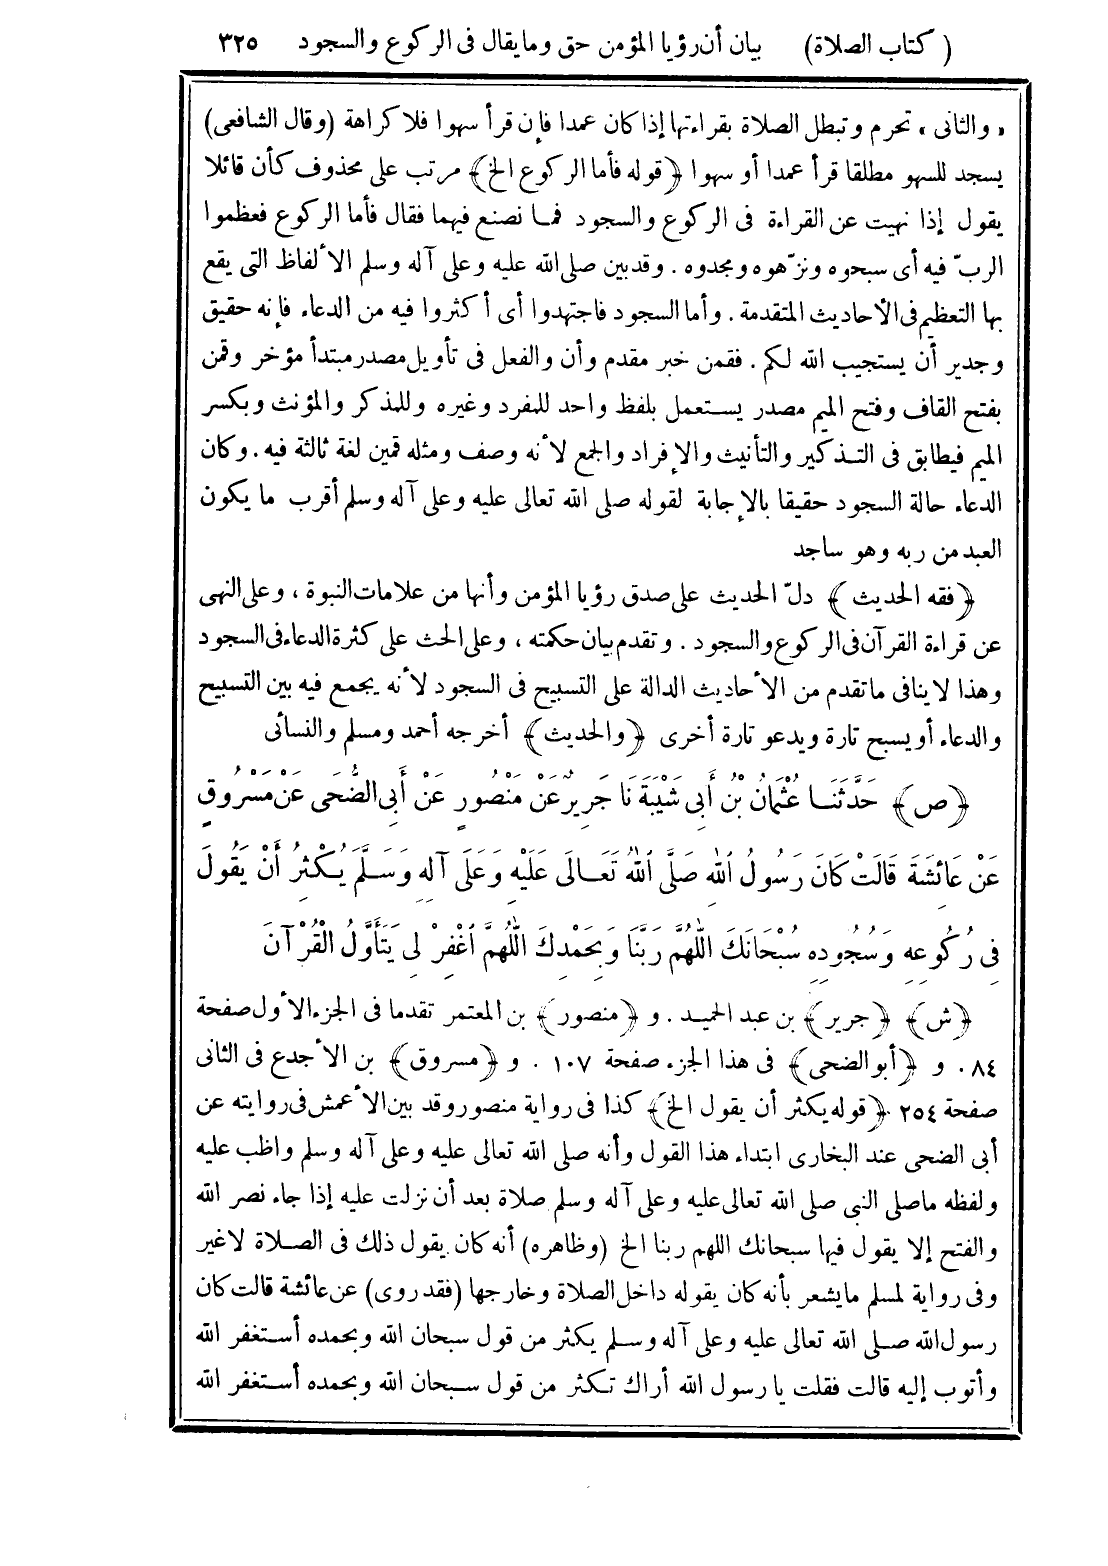 (كتاب الصلاة) بيان أن رؤيا المؤمن حق وما يقال فى الركوع والسجود ٣٢٥
«والثانى» تحرم وتبطل الصلاة بقراءتها إذا كان عمدا فإن قرأ سهوا فلا كراهة (وقال الشافعى)
يسجد للسهو مطلقا قرأ عمدا أو سهوا ﴿قوله فأما الركوع الخ﴾ مرتب على محذوف كأن قائلا
يقول إذا نهيت عن القراءة فى الركوع والسجود فمـا نصنع فيهما فقال فأما الركوع فعظموا
الربّ فيه أى سبحوه ونزّهوه ومجدوه . وقد بين صلى الله عليه وعلى آله وسلم الألفاظ التى يقع
بها التعظيم فى الأحاديث المتقدمة . وأما السجود فاجتهدوا أى أكثروا فيه من الدعاء فإنه حقيق
وجدير أن يستجيب الله لكم . فقمن خبر مقدم وأن والفعل فى تأويل مصدر مبتدأ مؤخر وقمن
بفتح القاف وفتح الميم مصدر يستعمل بلفظ واحد للمفرد وغيره وللمذكر والمؤنث وبكسر
الميم فيطابق فى التـذكير والتأنيث والإفراد والجمع لأنه وصف ومثله قمين لغة ثالثة فيه . وكان
الدعاء حالة السجود حقيقا بالإجابة لقوله صلى الله تعالى عليه وعلى آله وسلم أقرب ما يكون
العبد من ربه وهو ساجد
﴿فقه الحديث﴾ دلّ الحديث على صدق رؤيا المؤمن وأنها من علامات النبوة ، وعلى النهى
عن قراءة القرآن فى الركوع والسجود . وتقدم بيان حكمته ، وعلى الحث على كثرة الدعاء فى السجود
وهذا لا ينافى ما تقدم من الأحاديث الدالة على التسبيح فى السجود لأنه يجمع فيه بين التسبيح
والدعاء أو يسبح تارة ويدعو تارة أخرى ﴿والحديث﴾ أخرجه أحمد ومسلم والنسائى
﴿ص﴾ حَدَّثَنَـا عُثْمَانُ بْنُ أَبِى شَيْبَةَ نَا جَرِيرٌ عَنْ مَنْصُورٍ عَنْ أَبِى الضُّحَى عَنْ مَسْرُوقٍ
عَنْ عَائِشَةَ قَالَتْ كَانَ رَسُولُ اللهِ صَلَّى اللهُ تَعَـالَى عَلَيْهِ وَعَلَى آلِهِ وَسَـلَّمَ يُكْثِرُ أَنْ يَقُولَ
فِى رُكُوعِهِ وَسُجُودِهِ سُبْحَانَكَ اللّٰهُمَّ رَبَّنَا وَبِحَمْدِكَ اللّٰهُمَّ اغْفِرْ لِى يَتَأَوَّلُ الْقُرْآنَ
﴿ش﴾ ﴿جرير﴾ بن عبد الحميـد . و ﴿منصور﴾ بن المعتمر تقدما فى الجزء الأول صفحة
٨٤ . و ﴿أبو الضحى﴾ فى هذا الجزء صفحة ١٠٧ . و ﴿مسروق﴾ بن الأجدع فى الثانى
صفحة ٢٥٤ . ﴿قوله يكثر أن يقول الخ﴾ كذا فى رواية منصور وقد بين الأعمش فى روايته عن
أبى الضحى عند البخارى ابتداء هذا القول وأنه صلى الله تعالى عليه وعلى آله وسلم واظب عليه
ولفظه ما صلى النبى صلى الله تعالى عليه وعلى آله وسلم صلاة بعد أن نزلت عليه إذا جاء نصر الله
والفتح إلا يقول فيها سبحانك اللهم ربنا الخ (وظاهره) أنه كان يقول ذلك فى الصـلاة لا غير
وفى رواية لمسلم ما يشعر بأنه كان يقوله داخل الصلاة وخارجها (فقد روى) عن عائشة قالت كان
رسول الله صـلى الله تعالى عليه وعلى آله وسـلم يكثر من قول سبحان الله وبحمده أسـتغفر الله
وأتوب إليه قالت فقلت يا رسول الله أراك تـكثر من قول سـبحان الله وبحمده أسـتغفر الله